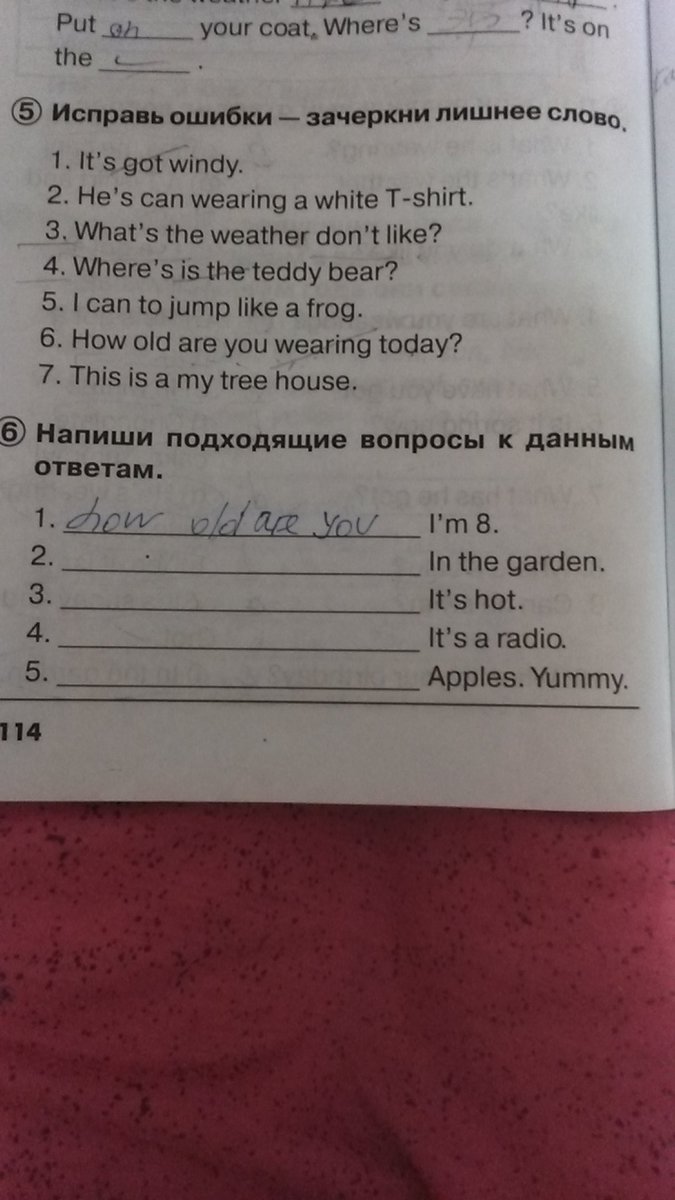 Put on your coat. Where's ? It's on
the .
5 Исправь ошибки — зачеркни лишнее слово.
1. It's got windy.
2. He's can wearing a white T-shirt.
3. What's the weather don't like?
4. Where's is the teddy bear?
5. I can to jump like a frog.
6. How old are you wearing today?
7. This is a my tree house.
6 Напиши подходящие вопросы к данным
ответам.
1. how old are you I'm 8.
2. In the garden.
3. It's hot.
4. It's a radio.
5. Apples. Yummy.
114